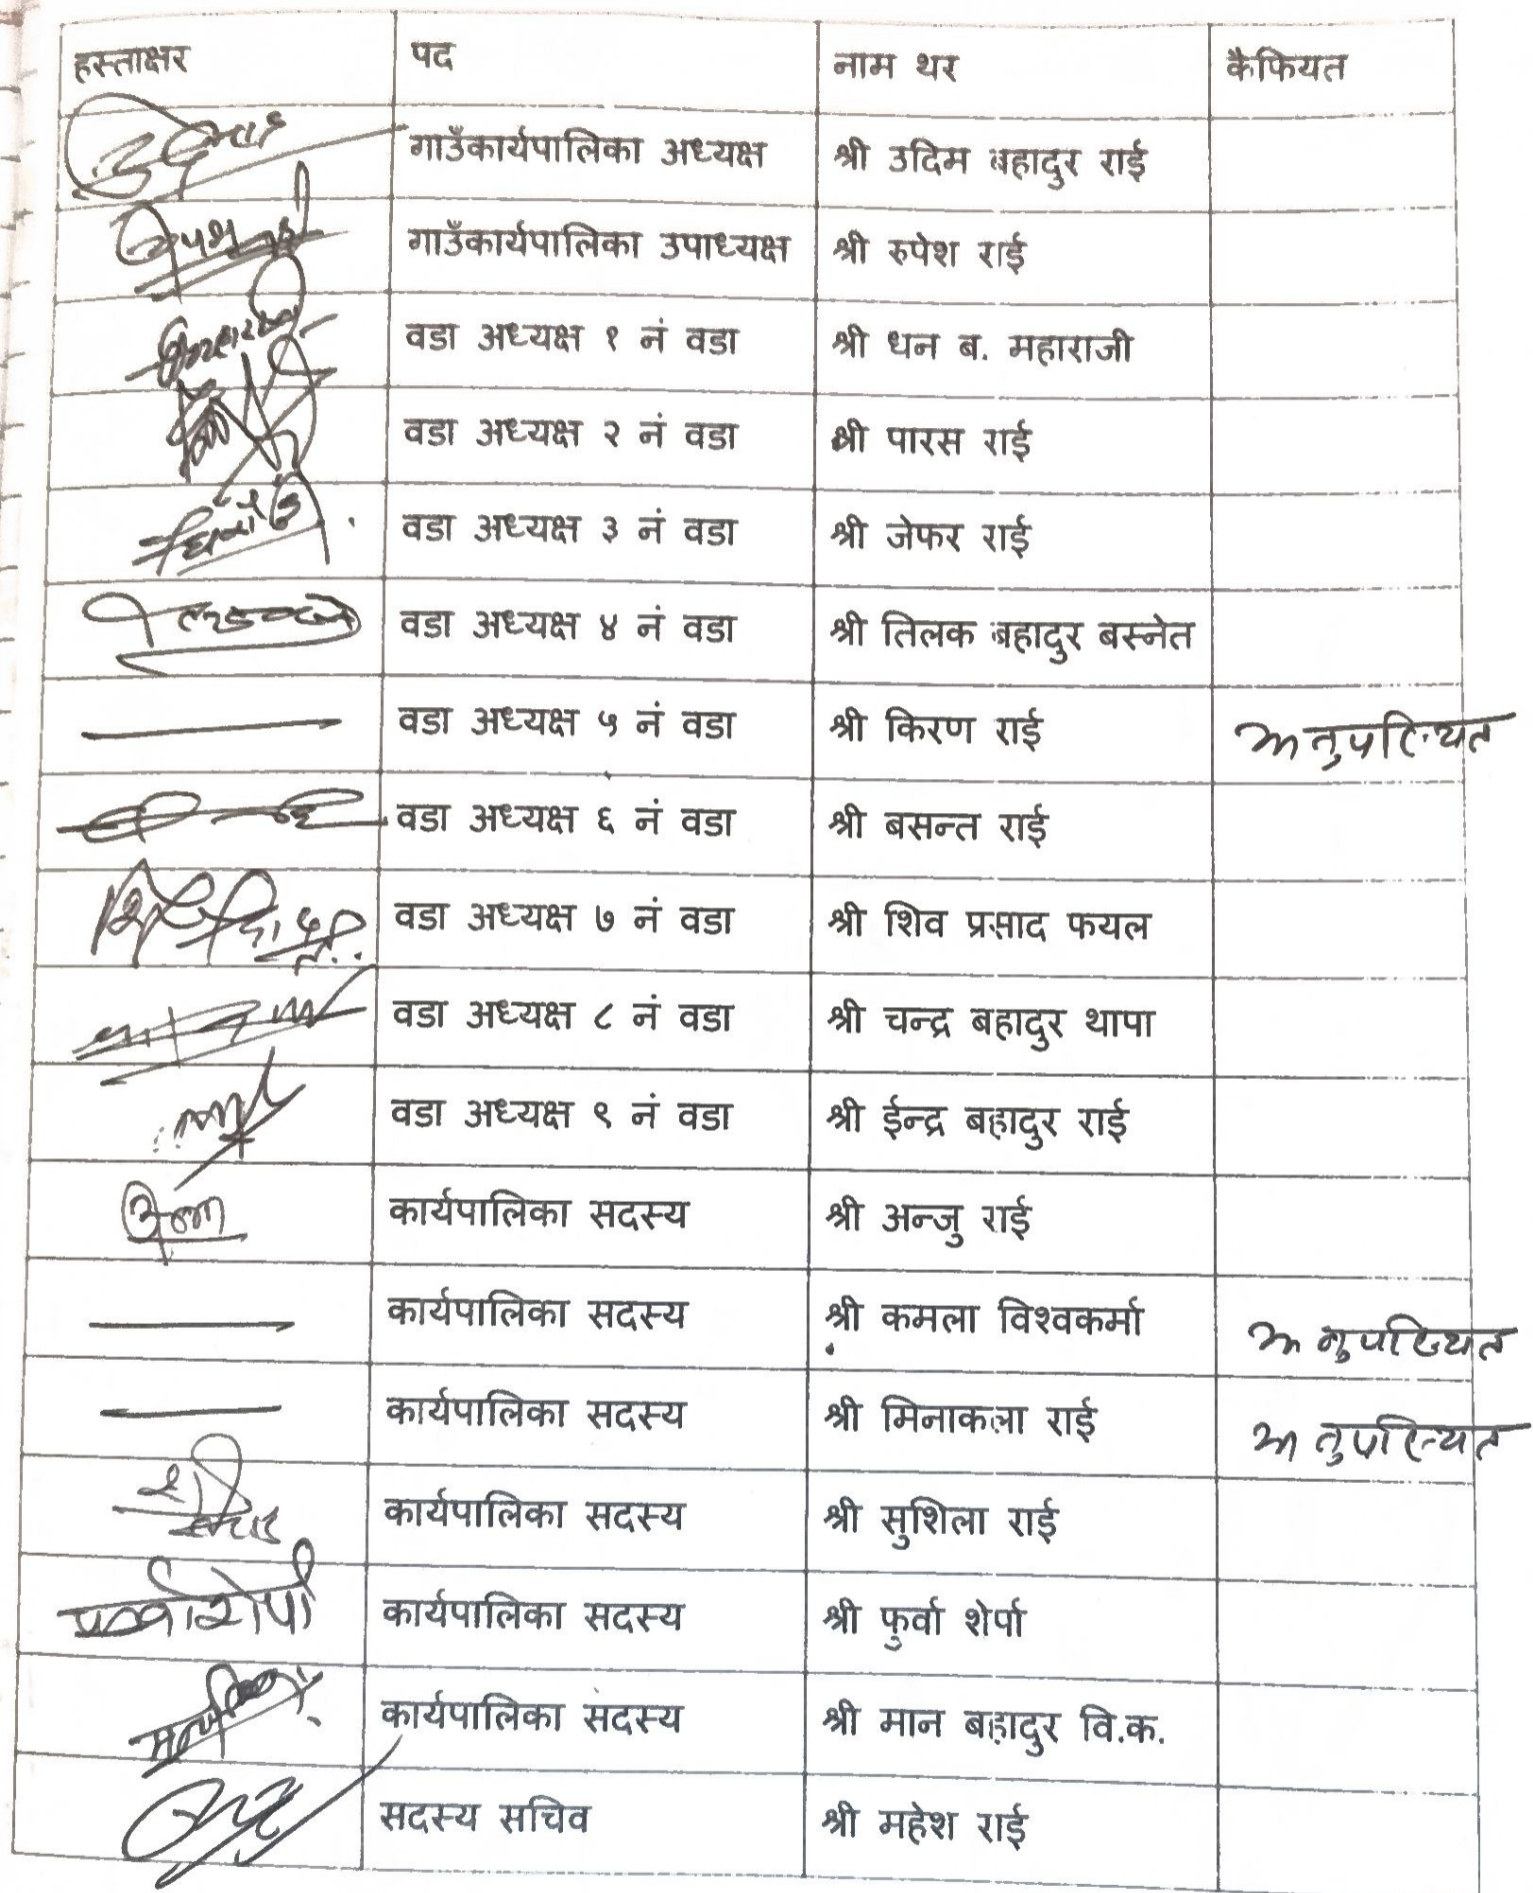 हस्ताक्षर पद नाम थर कैफियत
गाउँकार्यपालिका अध्यक्ष श्री उदिम बहादुर राई
गाउँकार्यपालिका उपाध्यक्ष श्री रुपेश राई
वडा अध्यक्ष १ नं वडा श्री धन ब. महाराजी
वडा अध्यक्ष २ नं वडा श्री पारस राई
वडा अध्यक्ष ३ नं वडा श्री जेफर राई
वडा अध्यक्ष ४ नं वडा श्री तिलक बहादुर बस्नेत
वडा अध्यक्ष ५ नं वडा श्री किरण राई अनुपस्थित
वडा अध्यक्ष ६ नं वडा श्री बसन्त राई
वडा अध्यक्ष ७ नं वडा श्री शिव प्रसाद फयल
वडा अध्यक्ष ८ नं वडा श्री चन्द्र बहादुर थापा
वडा अध्यक्ष ९ नं वडा श्री ईन्द्र बहादुर राई
कार्यपालिका सदस्य श्री अन्जु राई
कार्यपालिका सदस्य श्री कमला विश्वकर्मा अनुपस्थित
कार्यपालिका सदस्य श्री मिनाकला राई अनुपस्थित
कार्यपालिका सदस्य श्री सुशिला राई
कार्यपालिका सदस्य श्री फुर्वा शेर्पा
कार्यपालिका सदस्य श्री मान बहादुर वि.क.
सदस्य सचिव श्री महेश राई